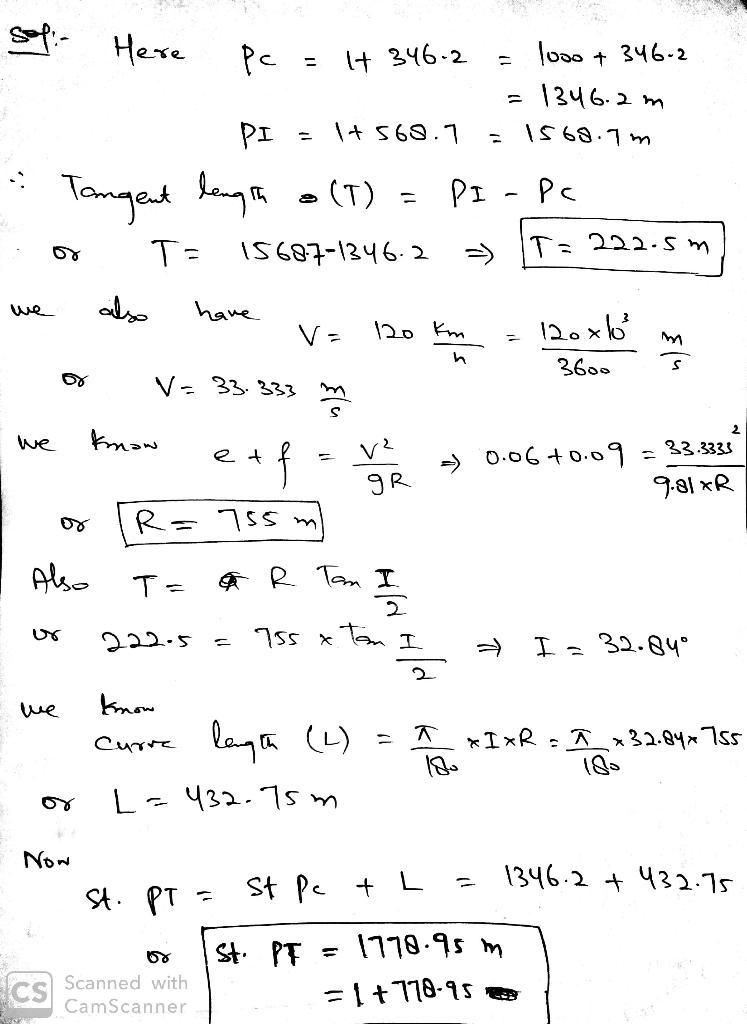 Sol:- Here PC = 1+ 346.2 = 1000 + 346.2
= 1346.2 m
PI = 1+ 568.7 = 1568.7 m
∴ Tangent length (T) = PI - PC
or T = 1568.7-1346.2 ⇒ T = 222.5 m
we also have V = 120 Km/h = 120×10³/3600 m/s
or V = 33.333 m/s
we know e + f = V²/gR ⇒ 0.06+0.09 = 33.3333²/9.81×R
or R = 755 m
Also T = R Tan I/2
or 222.5 = 755 × Tan I/2 ⇒ I = 32.84°
we know
curve length (L) = π/180 × I×R = π/180 × 32.84× 755
or L = 432.75 m
Now
St. PT = St PC + L = 1346.2 + 432.75
or St. PT = 1778.95 m
= 1+778.95
CS Scanned with
CamScanner